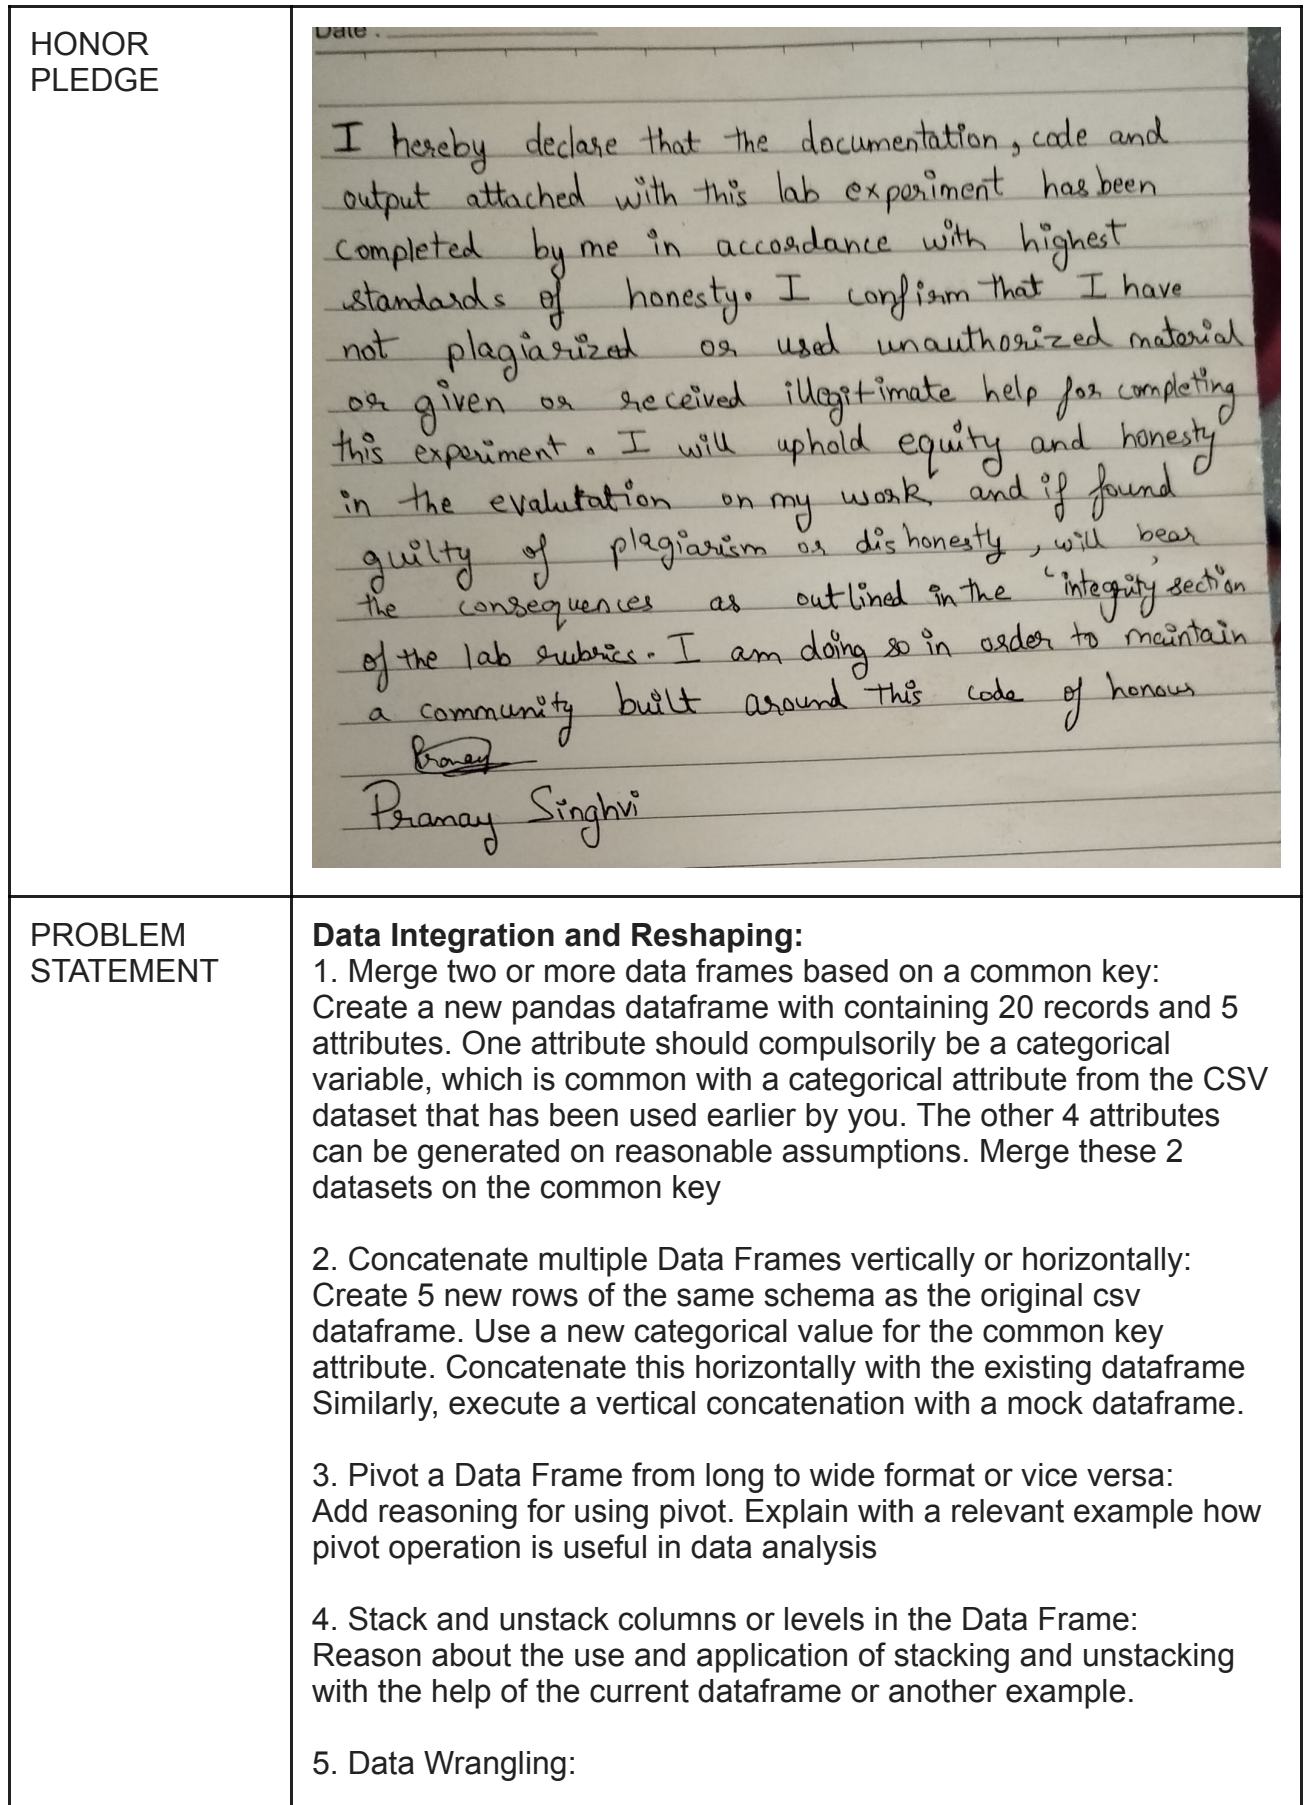 HONOR
PLEDGE
Date :
I hereby declare that the documentation, code and
output attached with this lab experiment has been
completed by me in accordance with highest
standards of honesty. I confirm that I have
not plagiarized or used unauthorized material
or given or received illegitimate help for completing
this experiment. I will uphold equity and honesty
in the evalutation on my work and if found
guilty of plagiarism or dishonesty, will bear
the consequences as outlined in the 'integrity' section
of the lab rubrics. I am doing so in order to maintain
a community built around this code of honour
Pranay
Pranay Singhvi
PROBLEM
STATEMENT
Data Integration and Reshaping:
1. Merge two or more data frames based on a common key:
Create a new pandas dataframe with containing 20 records and 5
attributes. One attribute should compulsorily be a categorical
variable, which is common with a categorical attribute from the CSV
dataset that has been used earlier by you. The other 4 attributes
can be generated on reasonable assumptions. Merge these 2
datasets on the common key
2. Concatenate multiple Data Frames vertically or horizontally:
Create 5 new rows of the same schema as the original csv
dataframe. Use a new categorical value for the common key
attribute. Concatenate this horizontally with the existing dataframe
Similarly, execute a vertical concatenation with a mock dataframe.
3. Pivot a Data Frame from long to wide format or vice versa:
Add reasoning for using pivot. Explain with a relevant example how
pivot operation is useful in data analysis
4. Stack and unstack columns or levels in the Data Frame:
Reason about the use and application of stacking and unstacking
with the help of the current dataframe or another example.
5. Data Wrangling: